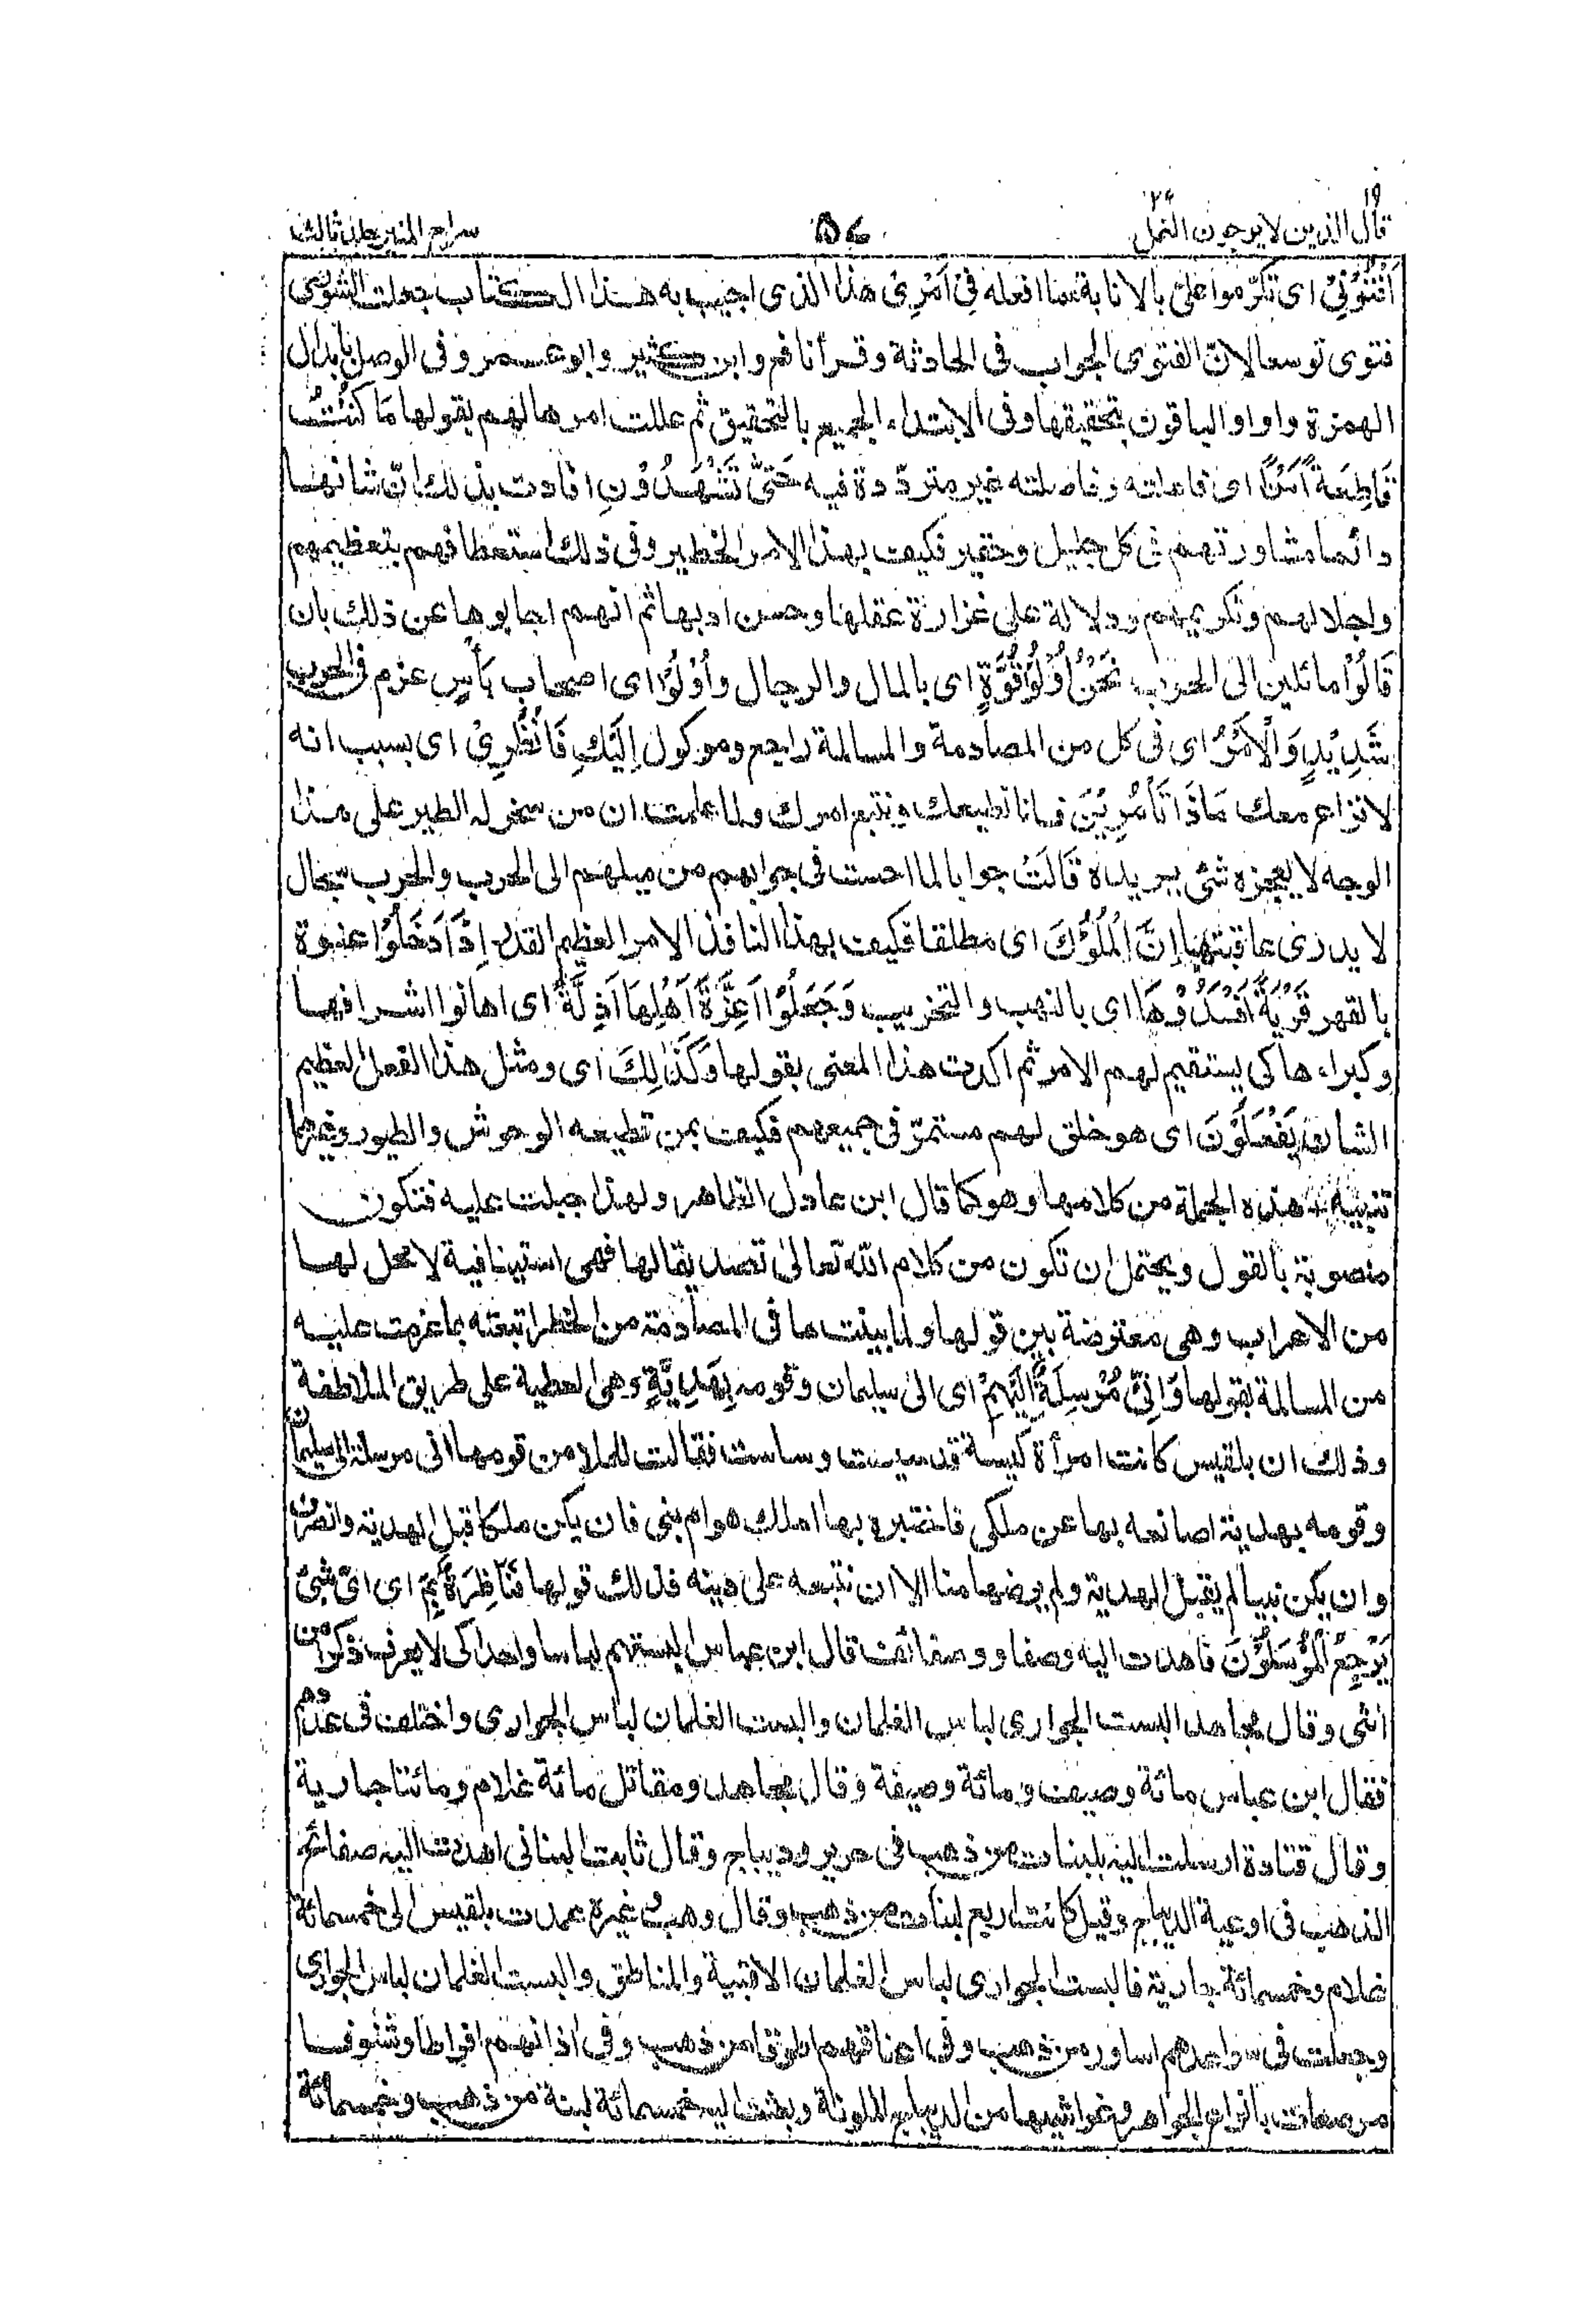 قال الذين لا يرجون النمل
٥٧
سراج المنير جلد ثالث
أَفْتُوْنِيْ اى تكرّموا علىّ بالانابة عما افعله فِيْ اَمْرِيْ هذا الذى اجيب به هذا الكتاب جعلت الشورى
فتوى توسعا لانّ الفتوى الجواب فى الحادثة وقرأ نافع وابن كثير وابو عمرو فى الوصل بابدال
الهمزة واوا والباقون بتحقيقها وفى الابتداء الجميع بالتحقيق ثم عللت امرها لهم بقولها مَا كُنْتُ
قَاطِعَةً اَمْرًا اى فاعلته وفاصلته غير متردّدة فيه حَتّٰى تَشْهَدُوْنِ افادت بذلك انّ شانها
دائما مشاورتهم فى كل جليل وحقير فكيف بهذا الامر الخطير وفى ذلك استعطافهم بتعظيمهم
واجلالهم وتكريمهم ودلالة على غزارة عقلها وحسن ادبها ثم انهم اجابوها عن ذلك بان
قَالُوْا مائلين الى الحرب نَحْنُ اُولُوْا قُوَّةٍ اى بالمال والرجال وَّاُولُوْا اى اصحاب بَأْسٍ عزم فى الحرب
شَدِيْدٍ وَالْاَمْرُ اى فى كل من المصادمة والمسالمة راجع وموكول اِلَيْكِ فَانْظُرِيْ اى بسبب انه
لا نزاع معك مَاذَا تَأْمُرِيْنَ فانا نطيعك ونتبع امرك ولما علمت ان من سخر له الطير على هذا
الوجه لا يعجزه شئ يريده قَالَتْ جوابا لما احست فى جوابهم من ميلهم الى الحرب والحرب سجال
لا يدرى عاقبتها اِنَّ الْمُلُوْكَ اى مطلقا فكيف بهذا النافذ الامر العظيم القدر اِذَا دَخَلُوْا عنوة
بالقهر قَرْيَةً اَفْسَدُوْهَا اى بالنهب والتخريب وَجَعَلُوْا اَعِزَّةَ اَهْلِهَا اَذِلَّةً اى اهانوا اشرافها
وكبراءها كى يستقيم لهم الامر ثم اكدت هذا المعنى بقولها وَكَذٰلِكَ اى ومثل هذا الفعل العظيم
الشان يَفْعَلُوْنَ اى هو خلق لهم مستمرّ فى جميعهم فكيف بمن تطيعه الوحوش والطيور وغيرهما
تنبيه هذه الجملة من كلامها وهو كما قال ابن عادل الظاهر ولهذا جبلت عليه فتكون
منصوبة بالقول ويحتمل ان تكون من كلام الله تعالى تصديقا لها فهى استينافية لا محل لها
من الاعراب وهى معترضة بين قولها ولما بينت ما فى المصادمة من الخطر اتبعته بما عزمت عليه
من المسالمة بقولها وَاِنِّيْ مُرْسِلَةٌ اِلَيْهِمْ اى الى سليمان وقومه بِهَدِيَّةٍ وهى العطية على طريق الملاطفة
وذلك ان بلقيس كانت امرأة كيسة قد سيست وساست فقالت للملا من قومها انى مرسلة الى سليمان
وقومه بهدية اصانعه بها عن ملكى فاختبره بها املك هو ام نبى فان يكن ملكا قبل الهدية وانصرف
وان يكن نبيا لم يقبل الهدية ولم يرضها منا الا ان نتبعه على دينه فذلك قولها فَنَاظِرَةٌ بِمَ اى اىّ شئ
يَرْجِعُ الْمُرْسَلُوْنَ فاهدت اليه وصفا ووصائف قال ابن عباس البستهم لباسا واحدا كى لا يعرف ذكر من
انثى وقال مجاهد البست الجوارى لباس الغلمان والبست الغلمان لباس الجوارى واختلف فى عددهم
فقال ابن عباس مائة وصيف ومائة وصيفة وقال مجاهد ومقاتل مائة غلام ومائتا جارية
وقال قتادة ارسلت اليه بلبنات من ذهب فى حرير وديباج وقال ثابت البنانى اهدت اليه صفائح
الذهب فى اوعية الديباج وقيل كانت اربع لبنات من ذهب وقال وهب وغيره عمدت بلقيس الى خمسمائة
غلام وخمسمائة جارية فالبست الجوارى لباس الغلمان الاقبية والمناطق والبست الغلمان لباس الجوارى
وجعلت فى سواعدهم اساور من ذهب وفى اعناقهم اطواقا من ذهب وفى اذانهم اقراطا وشنوفا
مرصعات بانواع الجواهر وغواشيها من الديباج الملونة وبعثت اليه خمسمائة لبنة من ذهب وخمسمائة